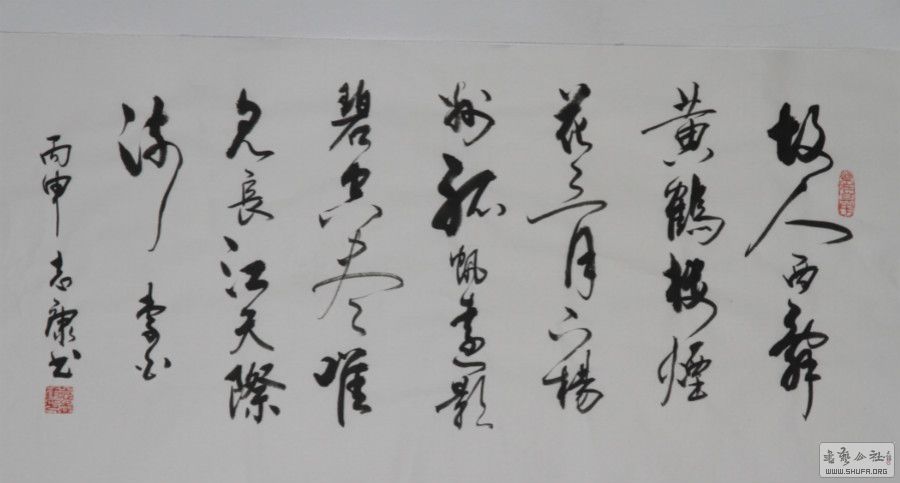 故人西辭
黄鶴楼煙
花三月下楊
州孤帆遠影
碧空尽唯
見長江天際
流 李白
丙申 志康书
書藝公社
WWW.SHUFA.ORG